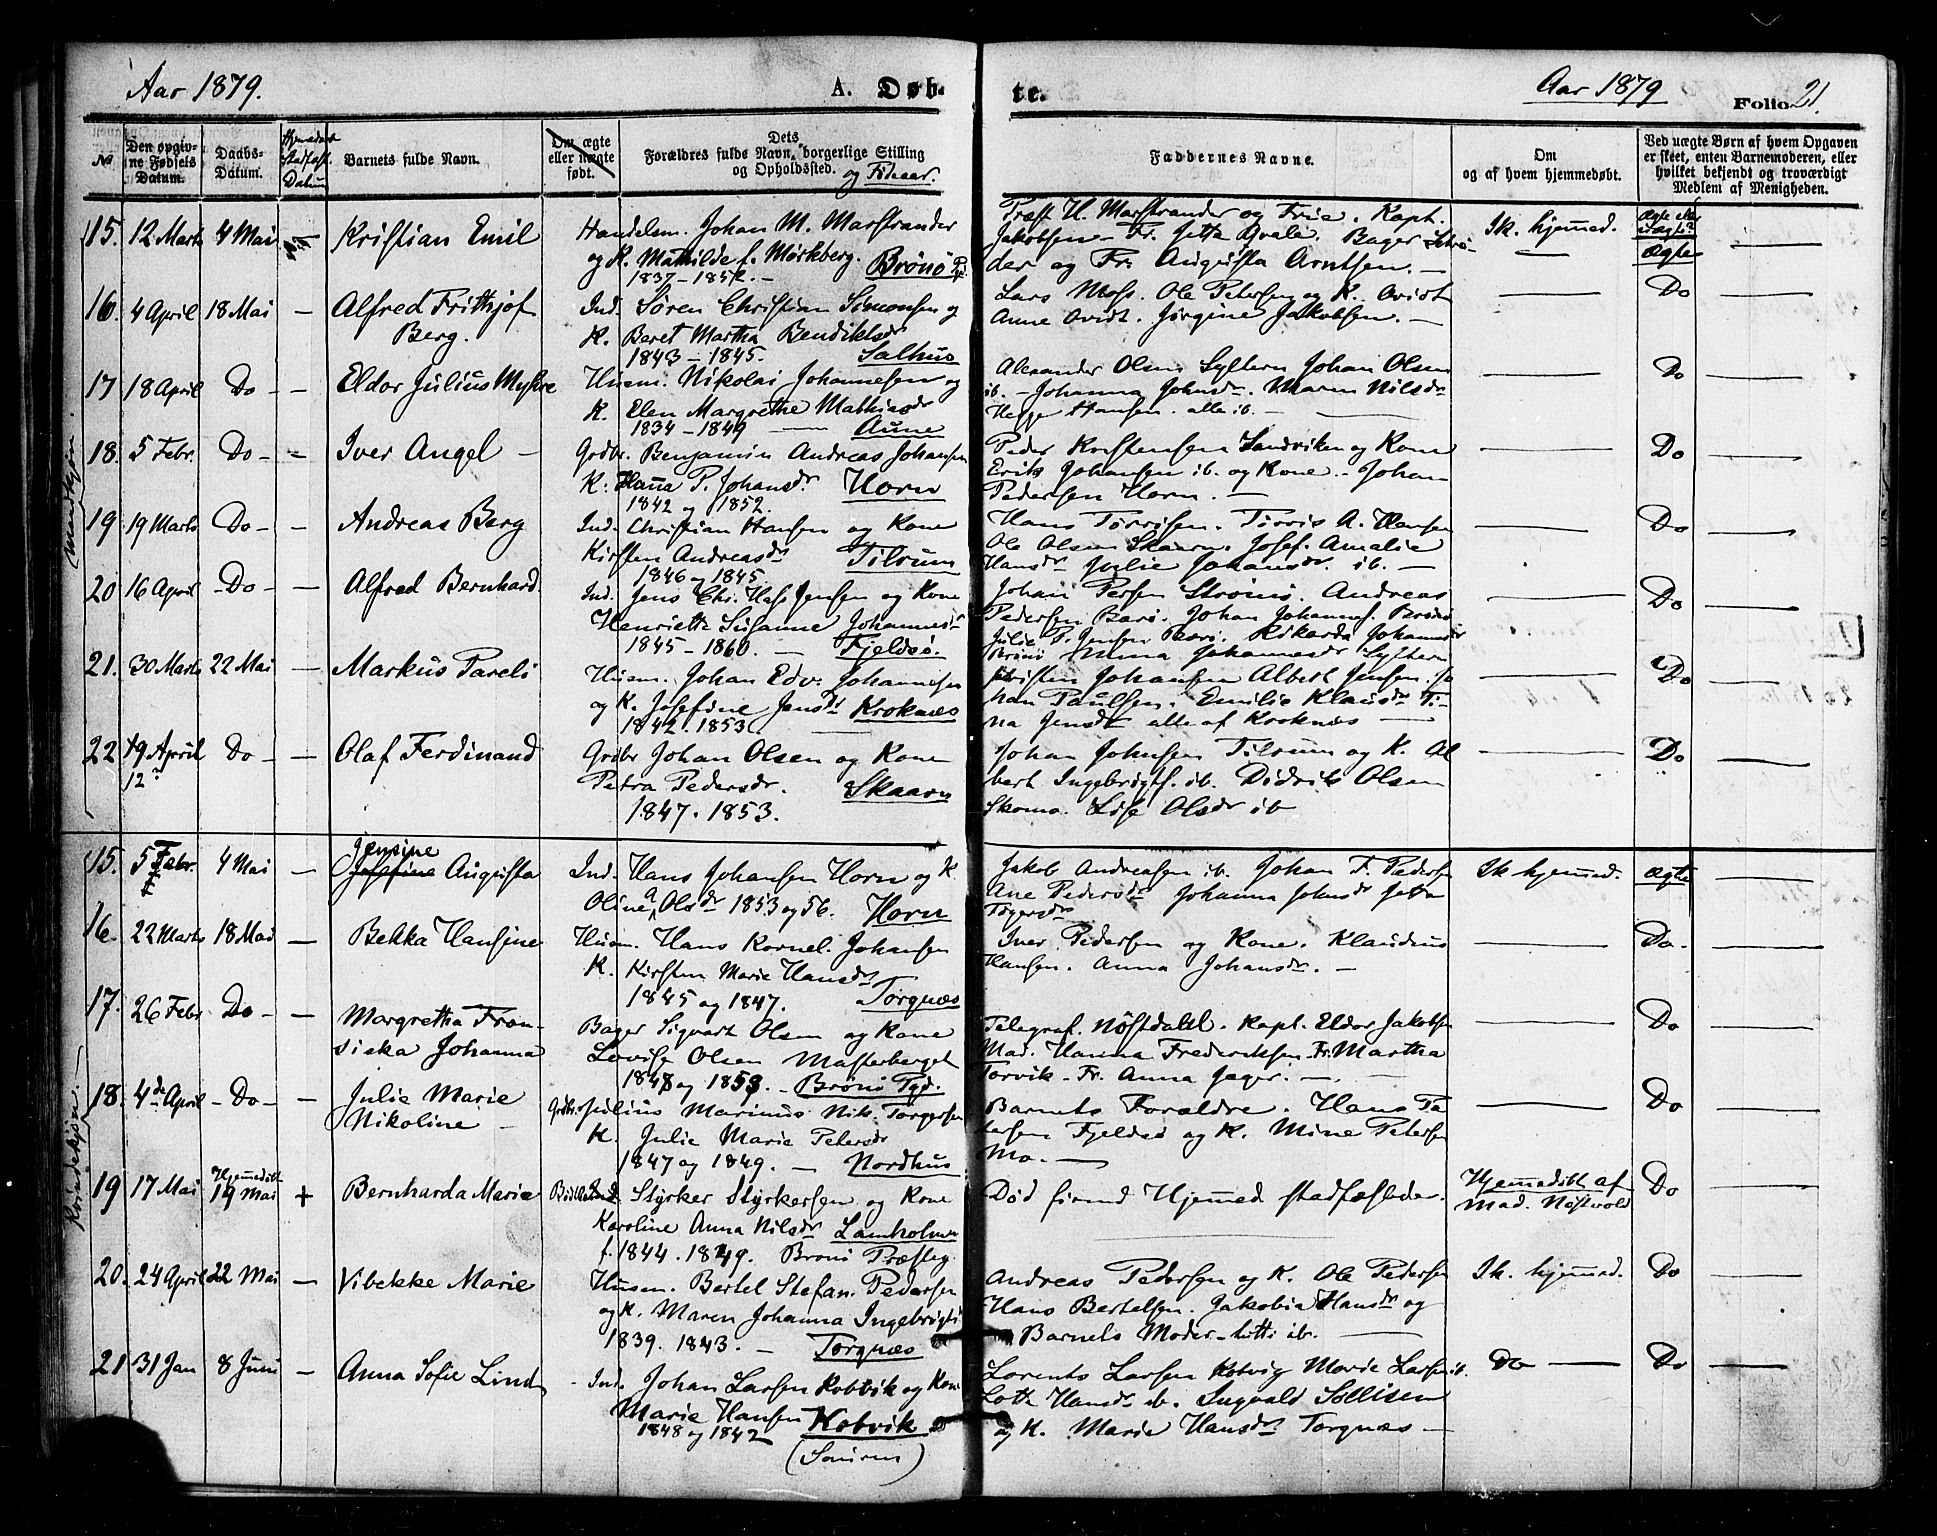 Aar 1879.
A. Døb-
te.
Aar 1879
Folio 21.
No
Den opgiv-
ne Fødsels
Datum.
Daabs-
Datum.
Barnets fulde Navn.
Om ægte
eller uægte
født.
Dets
Forældres fulde Navn, borgerlige Stilling
og Opholdssted.
og Fødeaar.
Faddernes Navne.
Om
og af hvem hjemmedøbt.
Ved uægte Børn af hvem Opgaven
er skeet, enten Barnemoderen, eller
hvilket bekjendt og troværdigt
Medlem af Menigheden.
Mandkjøn.
15. 12 Marts 4 Mai Kristian Emil Handelsm. Johan M. Marstrander
og K. Mathilde f. Mørkberg. Brönö
1837 - 1852. -
Præst H. Marstrander og Frue. Kapt.
Jakobsen - Fr. Jetta Qvale. Bager Schrø-
der og Fr. Augusta Arntsen. -
Ik. hjemmed. Ægte
16. 4 April 18 Mai - Alfred Frithjof Ind. Søren Christian Simonsen og
Berg. K. Beret Martha Bendiktsdr
1843 - 1845. Salhus
Lars Moss. Ole Petersen og K. Ovidt
Anne Ovidt. Jørgine Jakobsen. -
Do
17 18 April Do - - Eldor Julius Myhre Husm. Nikolai Johannesen og
K. Elen Margrethe Mathiasdr
1834 - 1849 Aune
Alexander Olsen Sylteren Johan Olsen
ib. - Johanna Johnsdr. Maren Nilsdr
Hansen. alle ib. -
Do
18. 5 Febr. Do - - Iver Angel - Grdbr. Benjamin Andreas Johansen
K. Hanna P. Johansdr. Horn
1842 og 1852.
Peder Korstensen Sandviken og Kone
Erik Johansen ib. og Kone - Johan
Pedersen Horn. -
Do
19 19 Marts Do - - Andreas Berg Ind. Christian Hansen og Kone
Kirsten Andreasdr Tilrum
1846 og 1845.
Hans Torrisen. Torris A. Hansen
Ole Olsen Skaarn. Josef. Amalie
Hansdr Julie Johansdr. ib. -
Do
20 16 April - Do - - Alfred Bernhard Ind. Jens Chr. Jensen og Kone
Henrietta Susanne Johannesdr
1845 - 1860. - Fjeldsø.
Johan Persen Strömö. Andreas
Pedersen Barø. Johan Johannes. Brönö
Julie P. Jensen Rikarda Johannesdr
Brönö Mina Johannesdr Sylteren
Do
21. 30 Marts 22 Mai - Markus Pareli Husm. Johan Edv. Johannesen
og K. Josefine Jensdr Kroknæs
1842. 1853
Kristen Johansen Albert Jensen. Jo
han Paulsen. Emilie Klausdr Ti-
na Jensdr alle af Kroknæs -
Do
22 19 April Do - - Olaf Ferdinand Grdbr Johan Olsen og Kone
12?
Petra Pedersdr. Skaarn
1847. 1853.
Johan Johnsen Tilrum og K. Al
bert Ingebrigts. ib. Didrik Olsen
Skomo. Lise Olsdr ib
Do
Kvindekjön.
15. 5 Febr. 4 Mai - Jensine Augusta Ind. Hans Johansen Horn og K
Oline Olsdr 1853 og 56. Horn
Jakob Andreasen ib. Johan F. Peders
Ane Pedersdr Johanna Johnsdr
Ik. hjemmed. Ægte
16. 22 Marts 18 Mai - Bekka Hansine Husm. Hans Kornel. Johansen
K. Kirsten Marie Hansdr
1845 og 1847. Torgnæs
Iver Pedersen og Kone. Klaudius
Hansen. Anna Johansdr. -
Do.
17. 26 Febr. Do - - Margretha Fran-
siska Johanna Bager Sigvart Olsen og Kone
Lovise Olsen Masterberget
1848 og 1853. - Brönö Pgd.
Telegraf. Nøstdahl. Kapt. Eldor Jakobsen
Mad. Hanna Frederiksen Fr. Martha
Torvik - Fr. Anna Jager. -
Do
18. 4de April - Do - - Julie Marie
Nikoline - Grdbr. Julius Marinus Nik. Torgersen
K. Julie Marie Petersdr
1847 og 1849. - Nordhus
Barnets Forældre. Hans Pe
tersen Fjeldsø og K. Mine Petersen
Mo. -
Do
19 17 Mai Hjemmedøbt
19 Mai + Bernharda Marie Styrker Styrkersen og Kone
Karoline Anna Nilsdr Lamholmen
f. 1844. 1849. Brönö Præsteg.
Död forend Hjemmed stadfæstedes.
Hjemmedöbt af
Mad. Nøstvold
Do
20. 24 April 22 Mai - Vibekke Marie Husm. Bertel Stefan. Pedersen
og K. Maren Johanna Ingebrigts
1839. 1843. - Torgnæs
Andreas Pedersen og K. Ole Pedersen
Hans Bertelsen. Jakobia Hansdr og
Barnets Moder - ib.
Ik. hjemmed. Do
21 31 Jan 8 Juni - Anna Sofie Lind - Ind. Johan Larsen Kobvik og Kone
Marie Hansen Kobvik
1848 og 1842
(Somnen)
Lorents Larsen Kobvig Marie Larsen ib.
Lotte Hansdr ib. Ingvald Sollisen
og K. Marie Hansdr Torgnæs -
Do Do